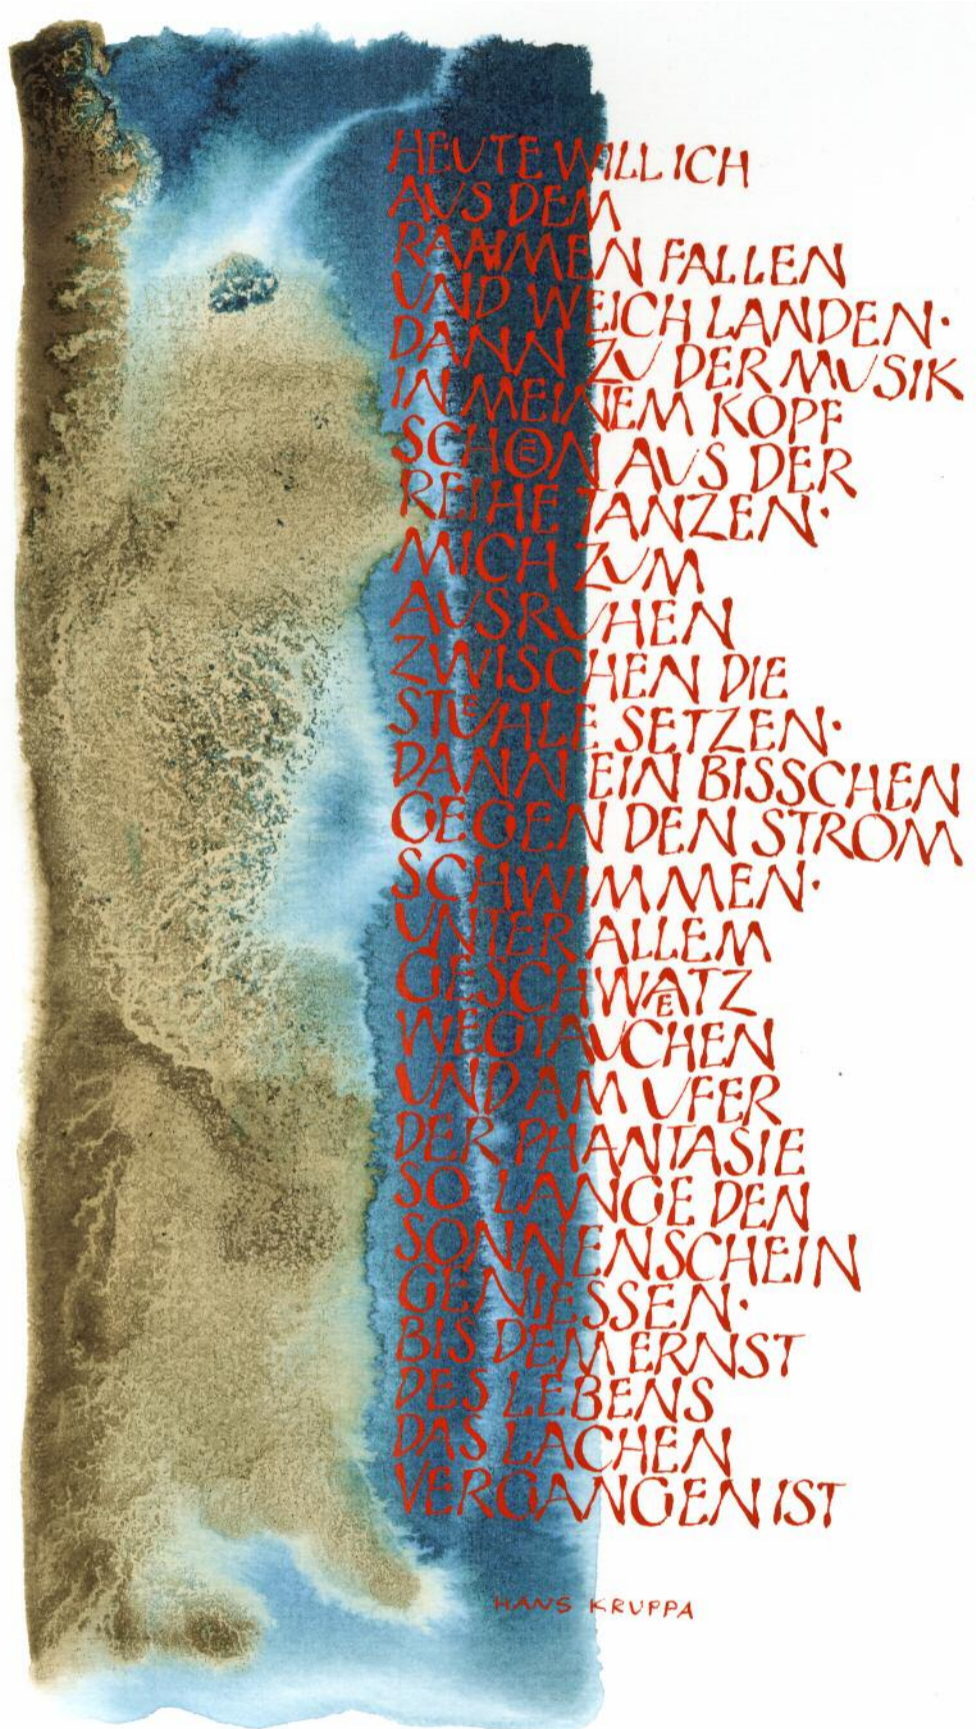 HEUTE WILL ICH
AUS DEM
RAHMEN FALLEN
UND WEICH LANDEN·
DANN ZU DER MUSIK
IN MEINEM KOPF
SCHÖN AUS DER
REIHE TANZEN·
MICH ZUM
AUSRUHEN
ZWISCHEN DIE
STÜHLE SETZEN·
DANN EIN BISSCHEN
GEGEN DEN STROM
SCHWIMMEN·
UNTER ALLEM
GESCHWÄTZ
WEGTAUCHEN
UND AM UFER
DER PHANTASIE
SO LANGE DEN
SONNENSCHEIN
GENIESSEN·
BIS DEM ERNST
DES LEBENS
DAS LACHEN
VERGANGEN IST
HANS KRUPPA